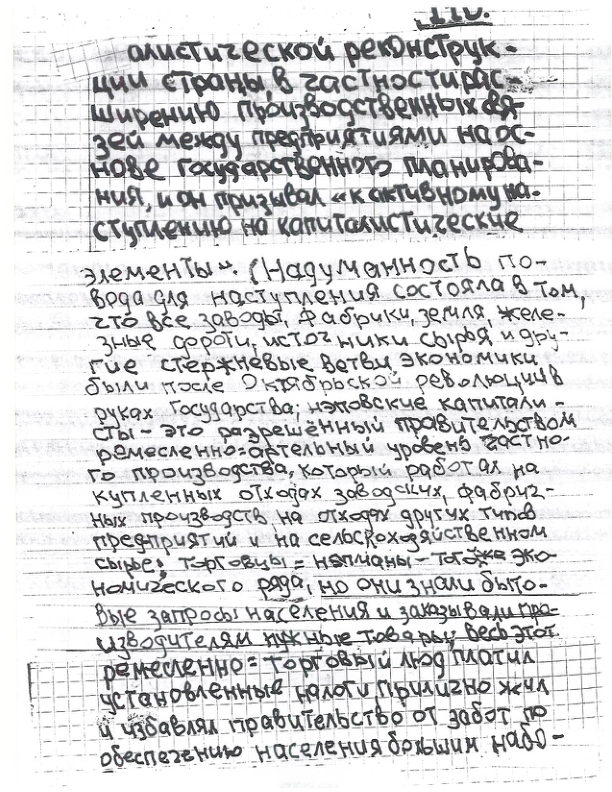 110.
алистической реконструк-
ции страны в частности рас-
ширению производственных свя-
зей между предприятиями на ос-
нове государственного планирова-
ния, и он призывал «к активному на-
ступлению на капиталистические
элементы". (Надуманность по-
вода для наступления состояла в том,
что все заводы, фабрики, земля, желе-
зные дороги, источники сырья и дру-
гие стержневые ветви экономики
были после Октябрьской революции в
руках Государства; нэповские капитали-
сты - это разрешённый правительством
ремесленно=артельный уровень частно-
го производства, который работал на
купленных отходах заводских, фабрич-
ных производств на отходах других типов
предприятий и на сельскохозяйственном
сырье; торговцы = нэпманы - того же эко-
номического ряда, но они знали быто-
вые запросы населения и заказывали про-
изводителям нужные товары; весь этот
ремесленно=торговый люд платил
установленные налоги прилично жил
и избавлял правительство от забот по
обеспечению населения большим набо-